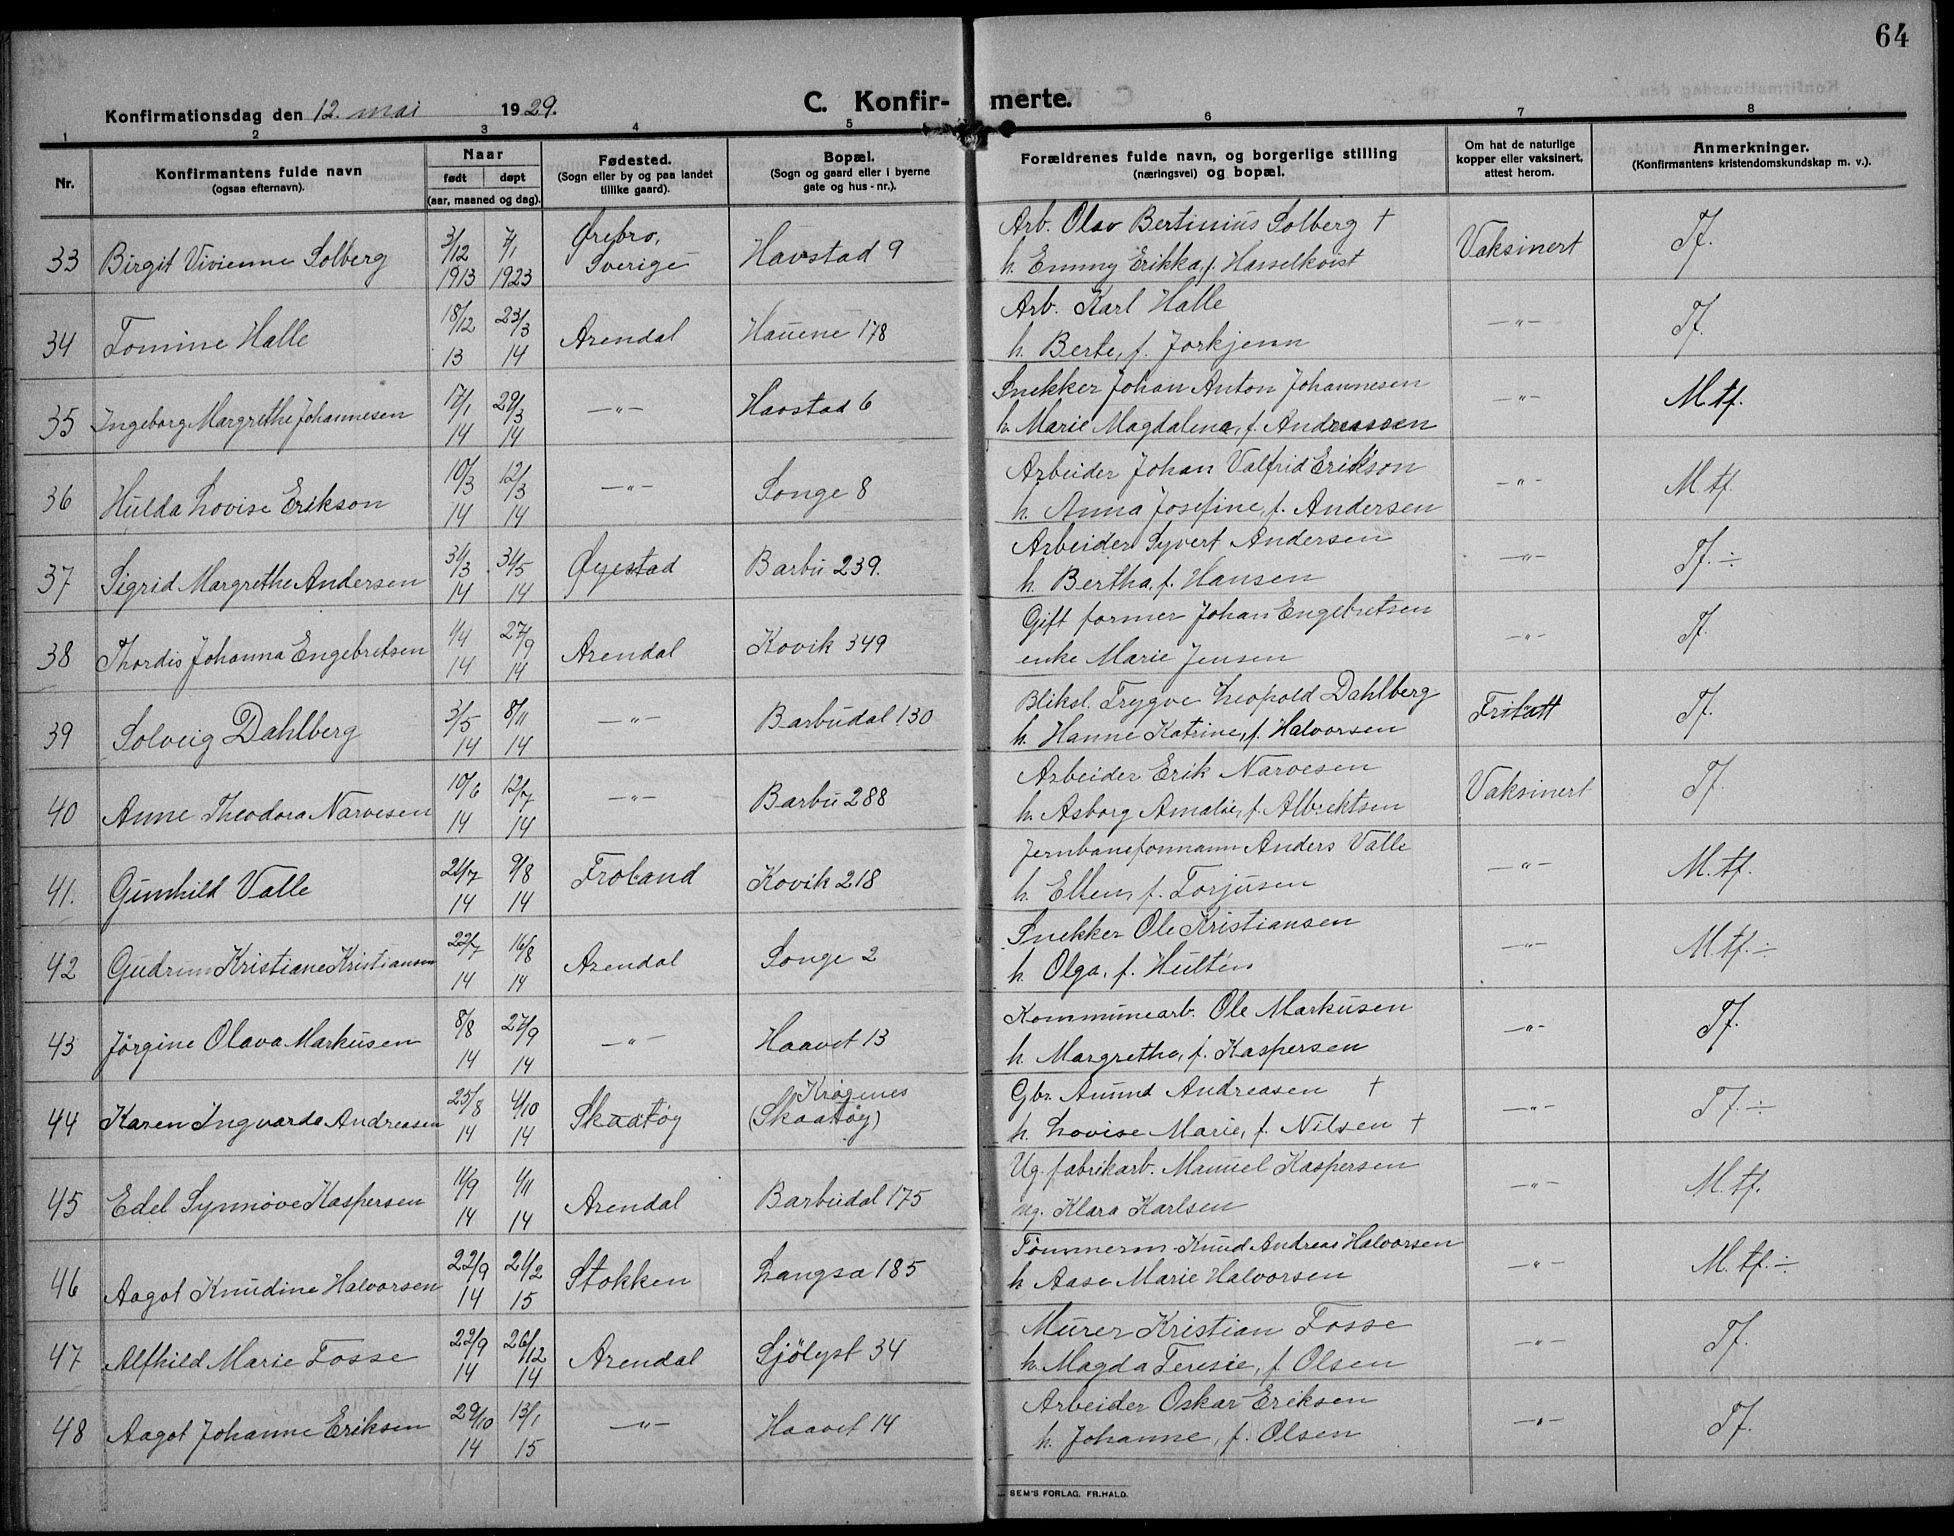 64
Konfirmationsdag den 12. mai 1929.
C. Konfir- merte.
1 2 3 4 5 6 7 8
Nr.
Konfirmantens fulde navn
(ogsaa efternavn).
Naar
født døpt
(aar, maaned og dag).
Fødested.
(Sogn eller by og paa landet
tillike gaard).
Bopæl.
(Sogn og gaard eller i byerne
gate og hus-nr.).
Forældrenes fulde navn, og borgerlige stilling
(næringsvei) og bopæl.
Om hat de naturlige
kopper eller vaksinert,
attest herom.
Anmerkninger.
(Konfirmantens kristendomskundskap m. v.).
33 Birgit Vivienne Solberg 3/12 1913 7/1 1923 Ørebro, Sverige Havstad 9
Arb. Olav Bertinius Solberg †
h. Emmy Erikka, f. Hasselkvist Vaksinert Tf.
34 Tomine Halle 18/12 13 23/3 14 Arendal Hauene 178
Arb. Karl Halle
h. Berte, f. Jorkjenn —„— Tf.
35 Ingeborg Margrethe Johannesen 17/1 14 29/3 14 —„— Havstad 6
Snekker Johan Anton Johannesen
h. Marie Magdalena, f. Andreassen —„— M.tf.
36 Hulda Lovise Erikson 10/3 14 12/3 14 —„— Songe 8
Arbeider Johan Valfrid Erikson
h. Anna Josefine, f. Andersen —„— M.tf.
37 Sigrid Margrethe Andersen 31/3 14 31/5 14 Øyestad Barbu 239.
Arbeider Syvert Andersen
h. Bertha, f. Hansen —„— Tf. ÷
38 Thordis Johanna Engebretsen 1/4 14 27/9 14 Arendal Kovik 349
Gift former Johan Engebretsen
enke Marie Jensen —„— Tf.
39 Solveig Dahlberg 3/5 14 8/11 14 —„— Barbudal 130
Bliksl. Trygve Leopold Dahlberg
h. Hanne Katrine, f. Halvorsen Fritatt Tf.
40 Anne Theodora Narvesen 10/6 14 12/7 14 —„— Barbu 288
Arbeider Erik Narvesen
h. Asborg Amalie, f. Albrektsen Vaksinert Tf.
41. Gunhild Valle 21/7 14 9/8 14 Froland Kovik 218
Jernbaneformann Anders Valle
h. Ellen, f. Torjusen —„— M.tf.
42 Gudrun Kristiane Kristiansen 22/7 14 16/8 14 Arendal Songe 2
Snekker Ole Kristiansen
h. Olga, f. Hultén —„— M.tf. ÷
43 Jörgine Olava Markusen 8/8 14 27/9 14 —„— Haavet 13
Kommunearb. Ole Markusen
h. Margrethe, f. Kaspersen —„— Tf.
44 Karen Ingvarda Andreasen 25/8 14 4/10 14 Skaatøy Krøgenes
(Skaatøy)
Gbr. Anund Andreasen †
h. Lovise Marie, f. Nilsen † —„— Tf. ÷
45 Edel Synnøve Kaspersen 11/9 14 1/11 14 Arendal Barbudal 175
Ug. fabrikarb. Manuel Kaspersen
ug. Klara Karlsen —„— M.tf.
46 Aagot Knudine Halvorsen 22/9 14 21/2 15 Stokken Langsa 185
Tömmerm. Knud Andreas Halvorsen
h Aase Marie Halvorsen —„— M.tf. ÷
47 Alfhild Marie Fosse 22/9 14 26/12 14 Arendal Sjölyst 34
Murer Kristian Fosse
h. Magda Teresie, f. Olsen —„— Tf.
48 Aagot Johanne Eriksen 29/10 14 13/1 15 —„— Haavet 14
Arbeider Oskar Eriksen
h. Johanne, f. Olsen —„— Tf.
SEM'S FORLAG. FR.HALD.